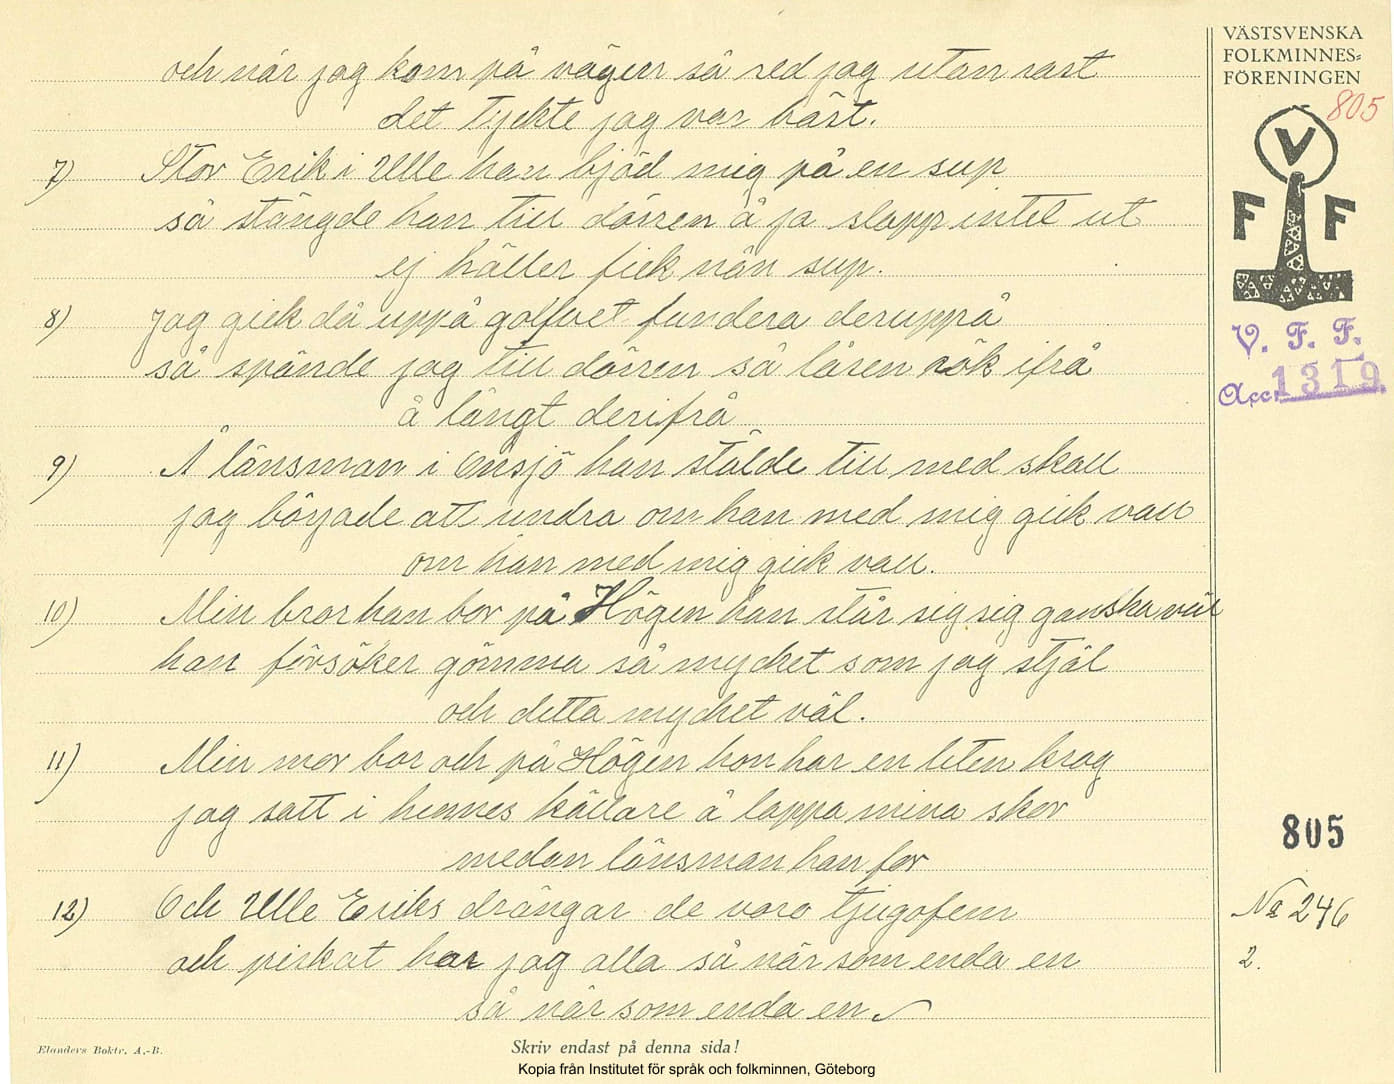 och när jag kom på vägen så red jag utan rast
det tyckte jag var bäst.
7) Stor Erik i Ulle han bjöd mig på en sup
så stängde han till dörren å ja slapp intet ut
ej häller fick nån sup.
8) Jag gick då uppå golfvet fundera deruppå
så spände jag till dörren så låsen rök ifrå
å långt derifrå
9) Å länsman i Önsjö han stälde till med skall
jag började att undra om han med mig gick vall
om han med mig gick vall.
10) Min bror han bor på Högen han står sig sig ganska väl
han försöker gömma så mycket som jag stjäl
och detta mycket väl.
11) Min mor bor och på Högen hon har en liten krog
jag satt i hennes källare å lappa mina skor
medan länsman han for
12) Och Ulle Eriks drängar de voro tjugofem
och piskat har jag alla så när som enda en
så när som enda en
VÄSTSVENSKA
FOLKMINNES=
FÖRENINGEN
805
V
F F
V. F. F.
Acc. 1319
805
No 246
2.
Elanders Boktr. A.-B.
Skriv endast på denna sida!
Kopia från Institutet för språk och folkminnen, Göteborg